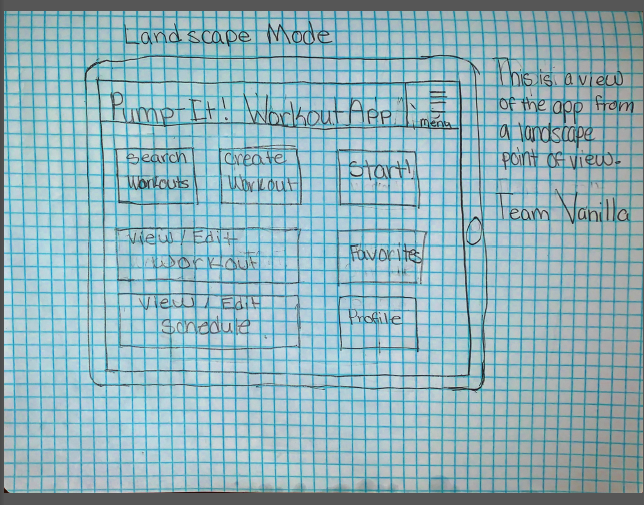 Landscape Mode
Pump-It! Workout App!
menu
Search
Workouts
Create
Workout
Start!
View / Edit
Workout
Favorites
View / Edit
Schedule
Profile
This is a view
of the app from
a landscape
point of view.
Team Vanilla